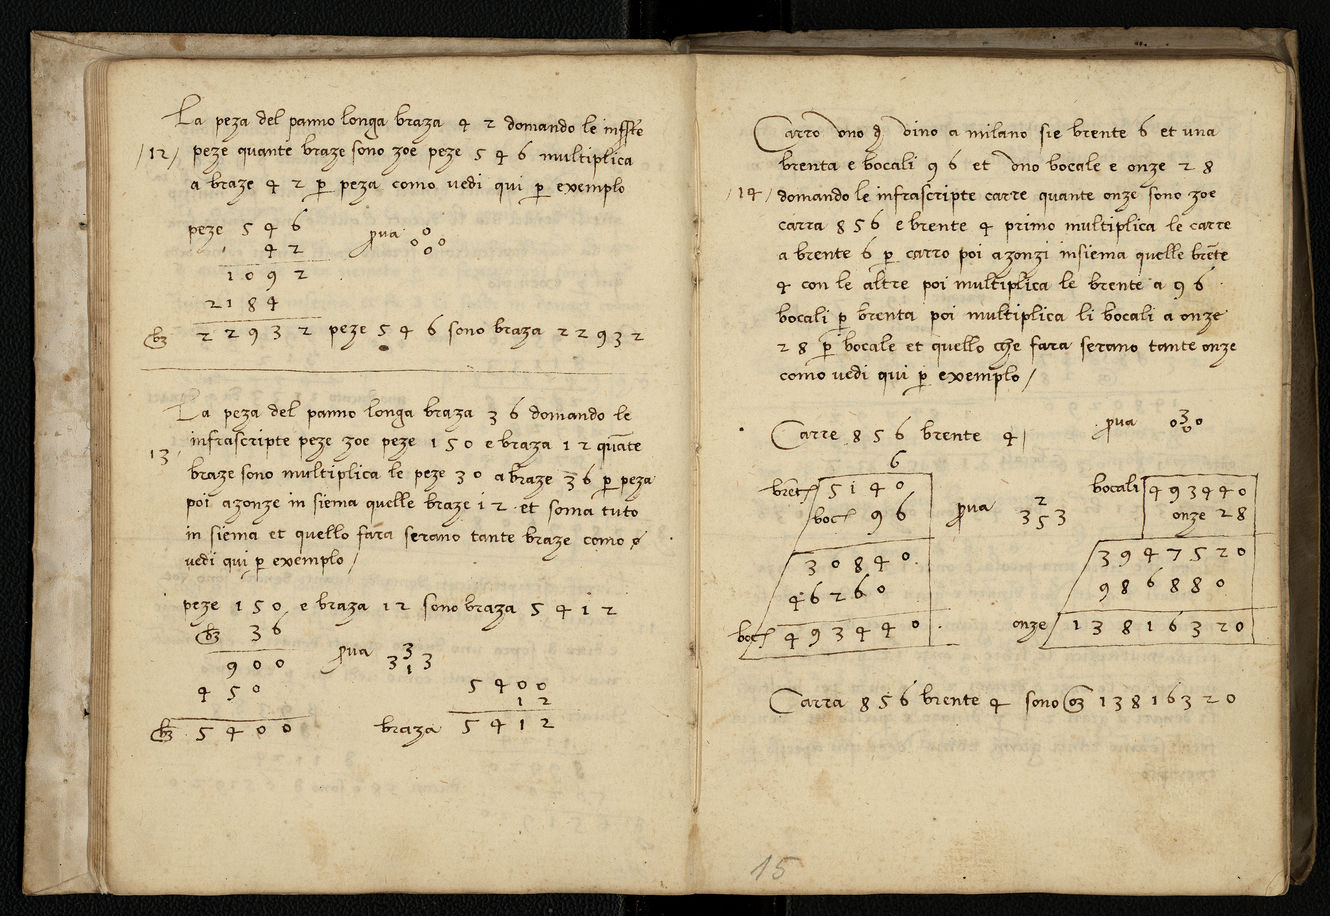 La peza del panno longa braza 4 2 domando le inffte
/12/ peze quante braze sono zoe peze 5 4 6 multiplica
a braze 4 2 p peza como vedi qui p exemplo
peze 5 4 6
4 2
prova 0
0 0
0
1 0 9 2
2 1 8 4
bz 2 2 9 3 2 peze 5 4 6 sono braza 2 2 9 3 2
La peza del panno longa braza 3 6 domando le
infrascripte peze zoe peze 1 5 0 e braza 1 2 quate
13
braze sono multiplica le peze 3 0 a braze 3 6 p peza
poi azonze in siema quelle braze 1 2 et soma tuto
in siema et quello fara serano tante braze como
vedi qui p exemplo /
peze 1 5 0 e braza 1 2 sono braza 5 4 1 2
bz 3 6
9 0 0
4 5 0
bz 5 4 0 0
prova 3
3 3
1
5 4 0 0
1 2
braza 5 4 1 2
Carro uno de vino a milano sie brente 6 et una
brenta e bocali 9 6 et uno bocale e onze 2 8
/14/ domando le infrascripte carre quante onze sono zoe
carra 8 5 6 e brente 4 primo multiplica le carre
a brente 6 p carro poi azonzi insiema quelle brete
4 con le altre poi multiplica le brente a 9 6
bocali p brenta poi multiplica li bocali a onze
2 8 p bocale et quello che fara serano tante onze
como vedi qui p exemplo /
Carre 8 5 6 brente 4 /
6
prova 3
0 0
0
bret 5 1 4 0
boc 9 6
3 0 8 4 0
4 6 2 6 0
boc 4 9 3 4 4 0
prova 2
3 3
5
bocali 4 9 3 4 4 0
onze 2 8
3 9 4 7 5 2 0
9 8 6 8 8 0
onze 1 3 8 1 6 3 2 0
Carra 8 5 6 brente 4 sono oz 1 3 8 1 6 3 2 0
15